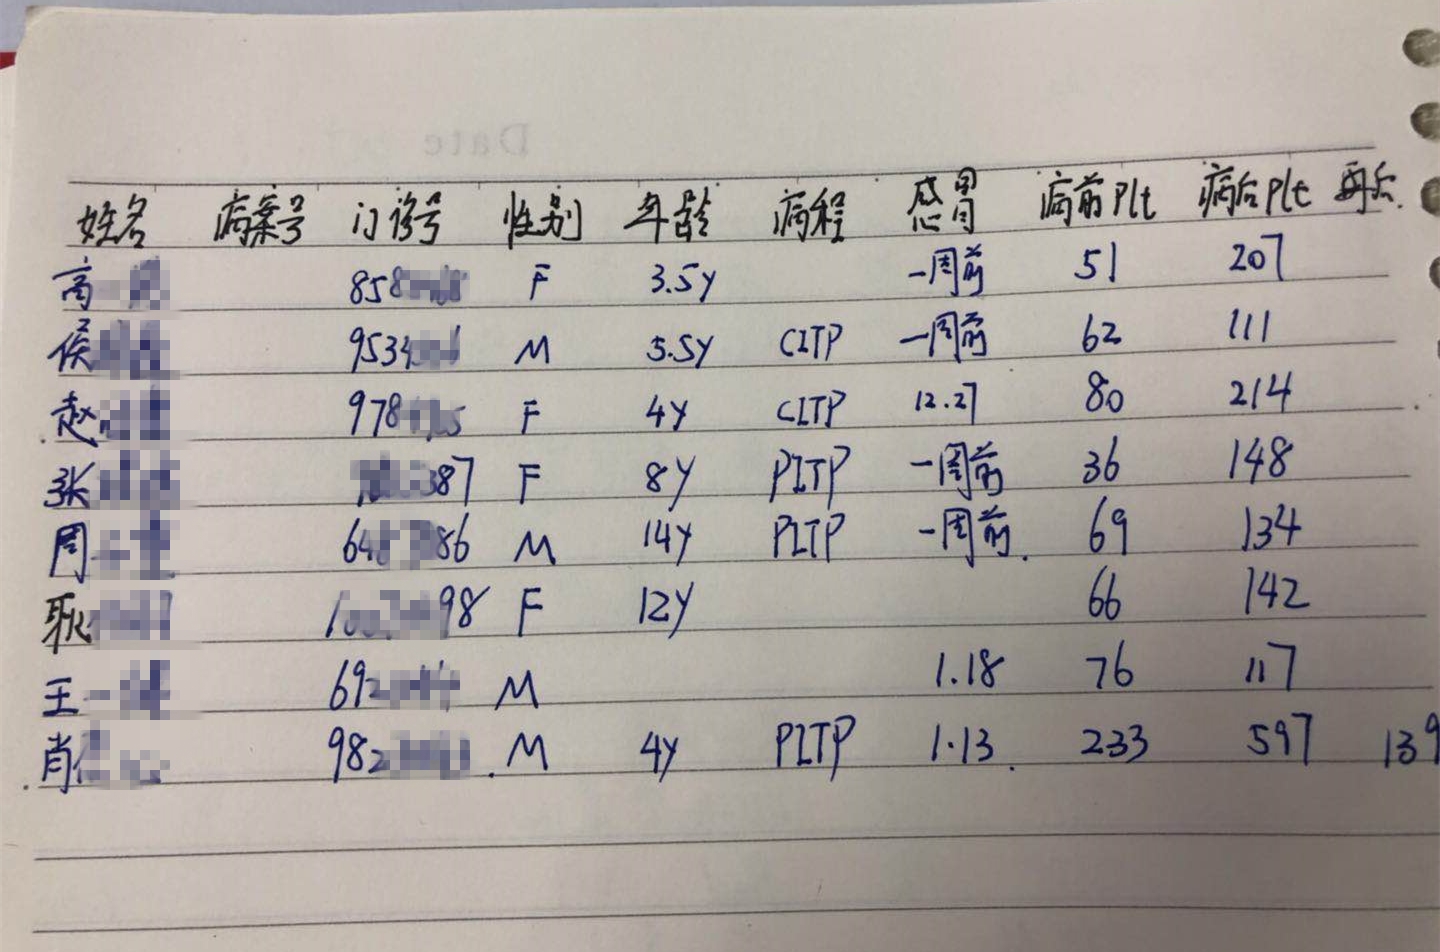 Date
姓名 病案号 门诊号 性别 年龄 病程 感冒 病前Plt 病后Plt 再后.
高 858 F 3.5y 一周前 51 207
侯 9534 M 5.5y CITP 一周前 62 111
赵 978 F 4y CITP 12.27 80 214
张 387 F 8y PITP 一周前 36 148
周 64 86 M 14y PITP 一周前. 69 134
耿 98 F 12y 66 142
王 692 M 1.18 76 117
肖 982 M 4y PITP 1.13 233 597 139